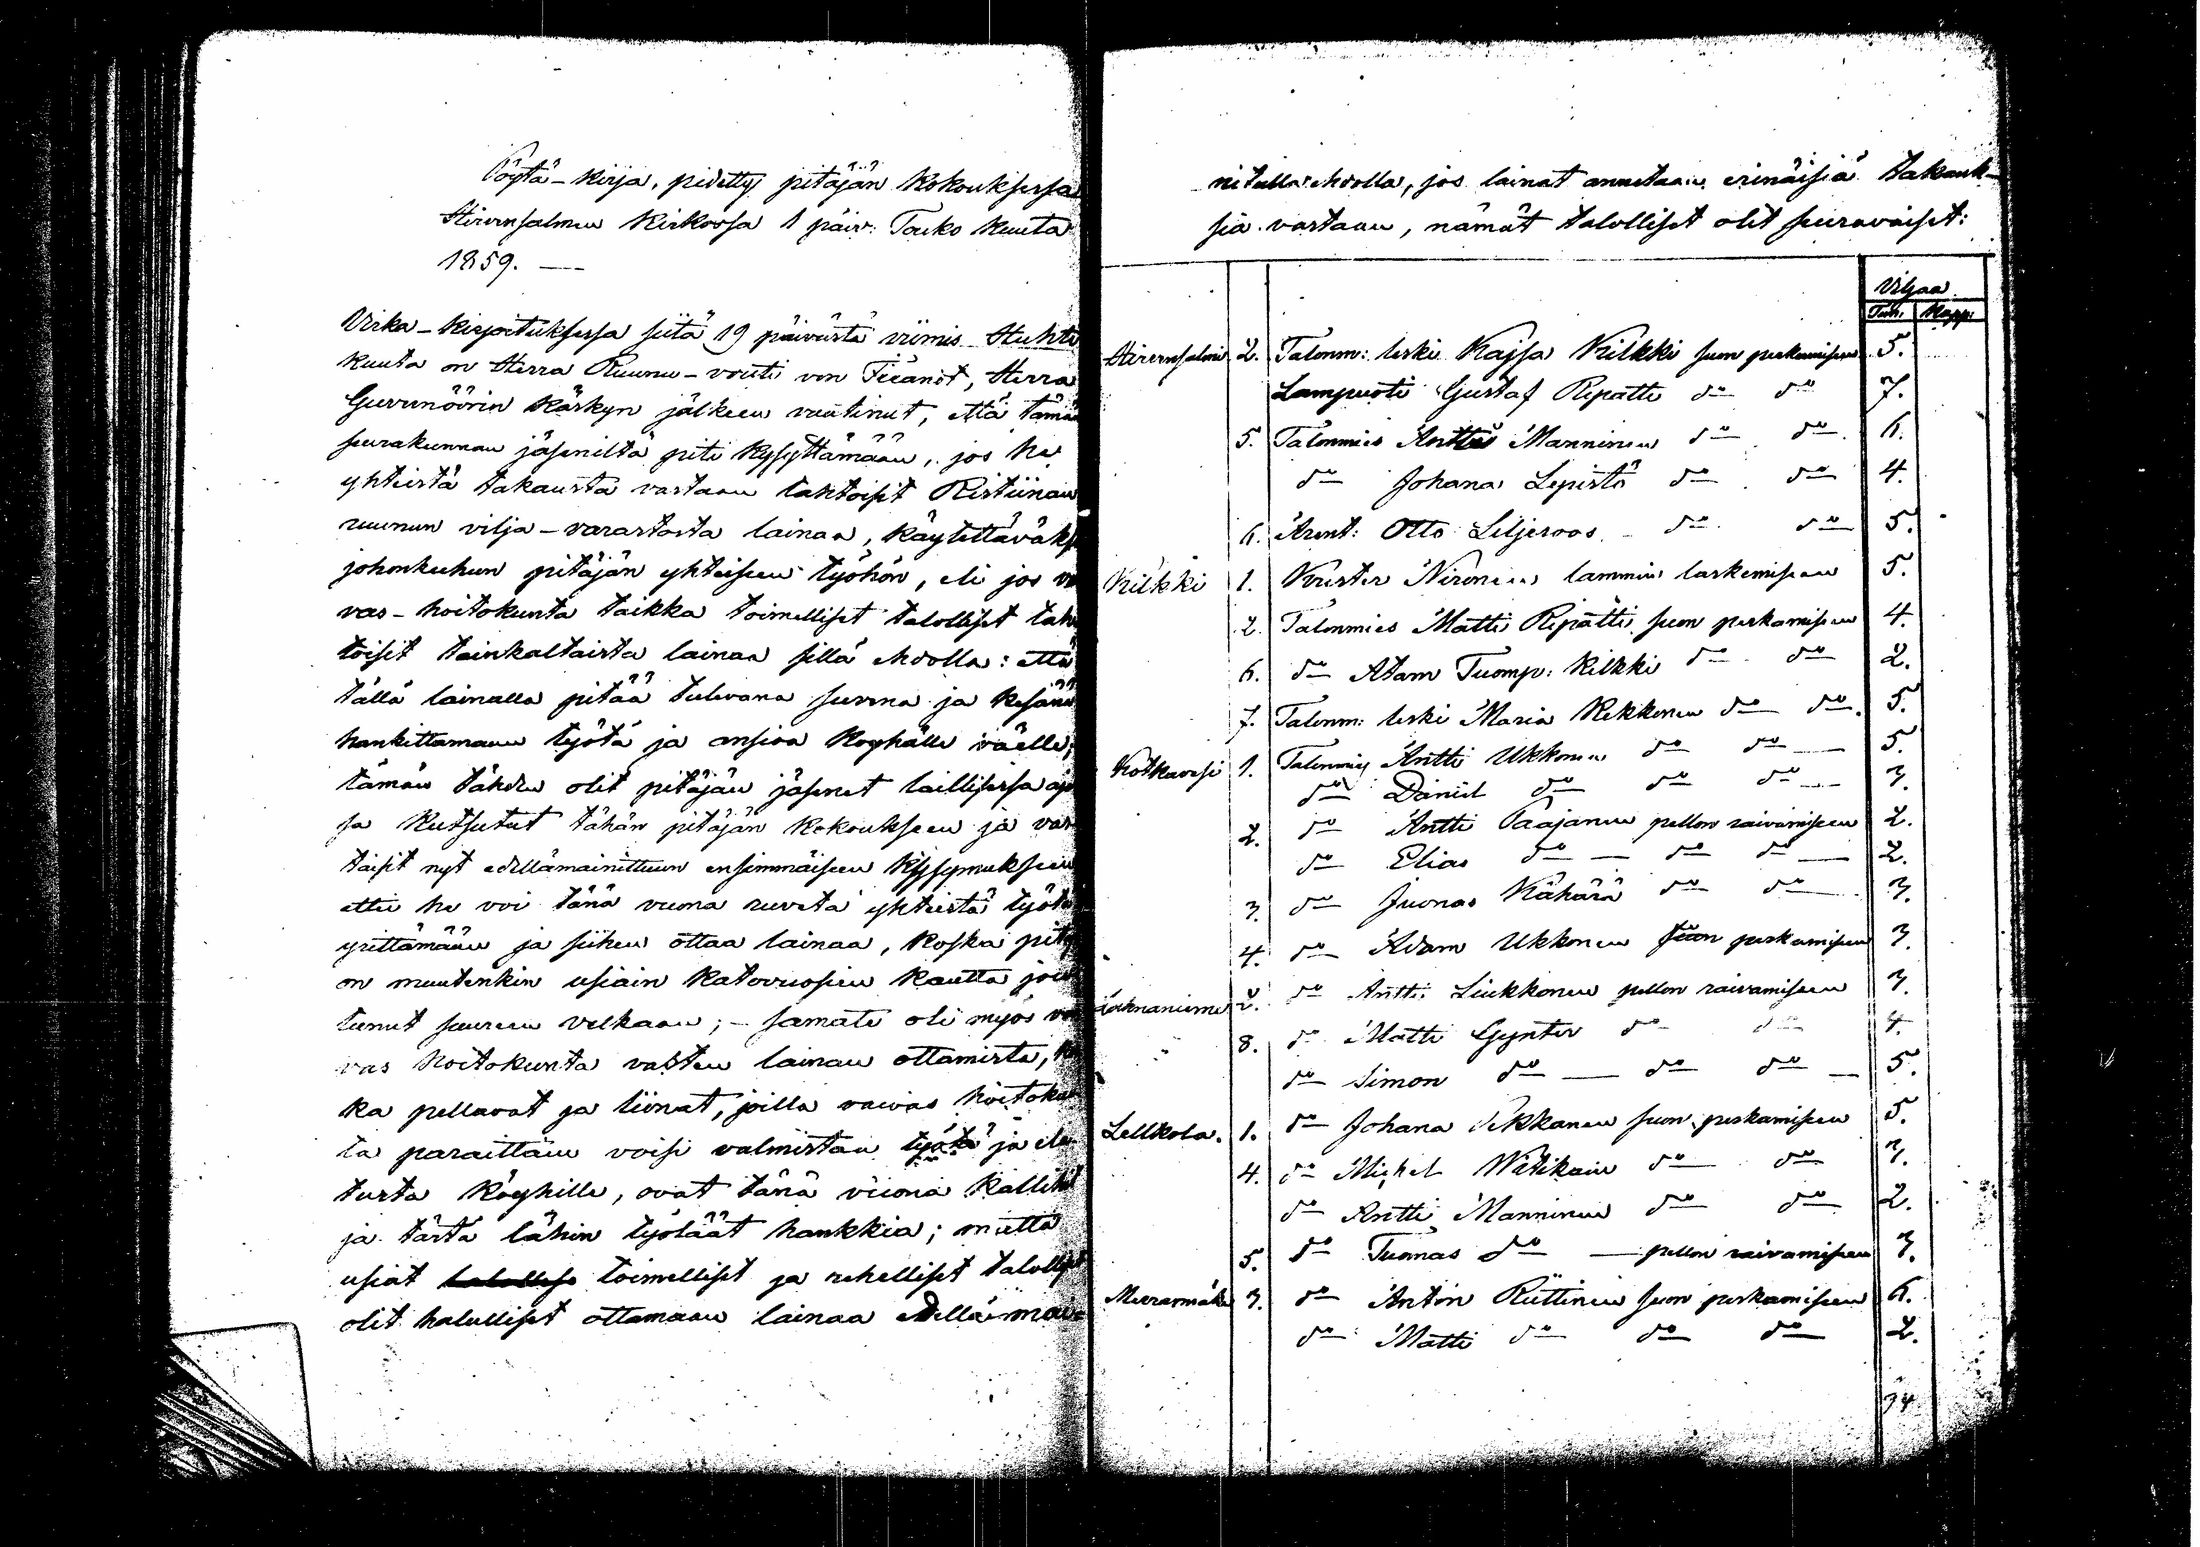 Pöytä-kirja, pidetty pitäjän kokouksessa
Hirvensalmen kirkossa 1 päiv: Touko kuuta
1859. —
Virka-kirjoituksessa siitä 19 päivästä viimis Huhti
kuuta on Herra Ruunu-vouti von Fieandt, Herra
Guvernöörin käskyn jälkeen vaatinut, että tämän
seurakunnan jäseniltä piti kysyttämään, jos he
yhteistä takausta vastaan tahtoisit Ristiinan
ruunun vilja-varastosta lainaa, käytettäväksi
johonkuhun pitäjän yhteiseen työhön, eli jos va
vas-hoitokunta taikka toimelliset talolliset tah
toisit tainkaltaista lainaa sillä ehdolla: että
tällä lainalla pitää tulevana suvena ja kesänä
hankittamaan työtä ja ansiota köyhälle väelle;
tämän tähden olit pitäjän jäsenet laillisessa aja
sa kutsutut tähän pitäjän kokoukseen ja vas
taisit nyt edellämainittuun ensimmäiseen kysymykseen
ettei he voi tänä vuona ruveta yhteistä työtä
yrittämään ja siihen ottaa lainaa, koska pitäjä
on muutenkin usiain katovuosien kautta jou
tunut suureen velkaan; - samate oli myös vai
vas hoitokunta vasten lainan ottamista, kos
ka pellavat ja liinat, joilla vaivas hoitokun
ta paraittain voisi valmistaa työtä ja ela
tusta köyhille, ovat tänä vuona kalliit
ja tästä lähin työläät hankkia; mutta
usiat talollise toimelliset ja rehelliset talolliset
olit halulliset ottamaan lainaa edellämai-
nitulla ehdolla, jos lainat annetaan erinäisiä takauk-
sia vastaan, nämät talolliset olit seuravaiset:
Viljaa
Tun: Kapp:
Hirvensalmi 2. Talonm: leski Kajsa Kilkki suon perkamiseen 5.
Lampuoti Gustaf Ripatti do do 7.
5. Talonmies Antti Manninen do do 6.
do Johana Lepistö do do 4.
6. Arent: Otto Liljeroos do do 5.
Kilkki 1. Vouster Nironen lammin laskemiseen 5.
2. Talonmies Matti Ripatti suon perkamiseen 4.
6. do Atam Tuomp: Kilkki do do 2.
7. Talonm: leski Maria Kekkonen do do 5.
Kotkavesi 1. Talonmies Antti Ukkonen do do 5.
do Daniel do do do 3.
2. do Antti Paajanen pellon raivamiseen 2.
do Elias do do do 2.
3. do Juonas Kähärä do do 3.
4. do Adam Ukkonen suon perkamiseen 3.
Lahnaniemi 2. do Antti Liukkonen pellon raivamiseen 3.
8. do Matti Gynter do do 4.
do Simon do do do 5.
Lellkola. 1. do Johana Pekkanen suon perkamiseen 5.
4. do Michel Witikain do do 3.
do Antti Manninen do do 2.
5. do Tuomas do pellon raivamiseen 3.
Meeranmäki 3. do Anton Rüttinen suon perkamiseen 6.
do Matti do do do 2.
94